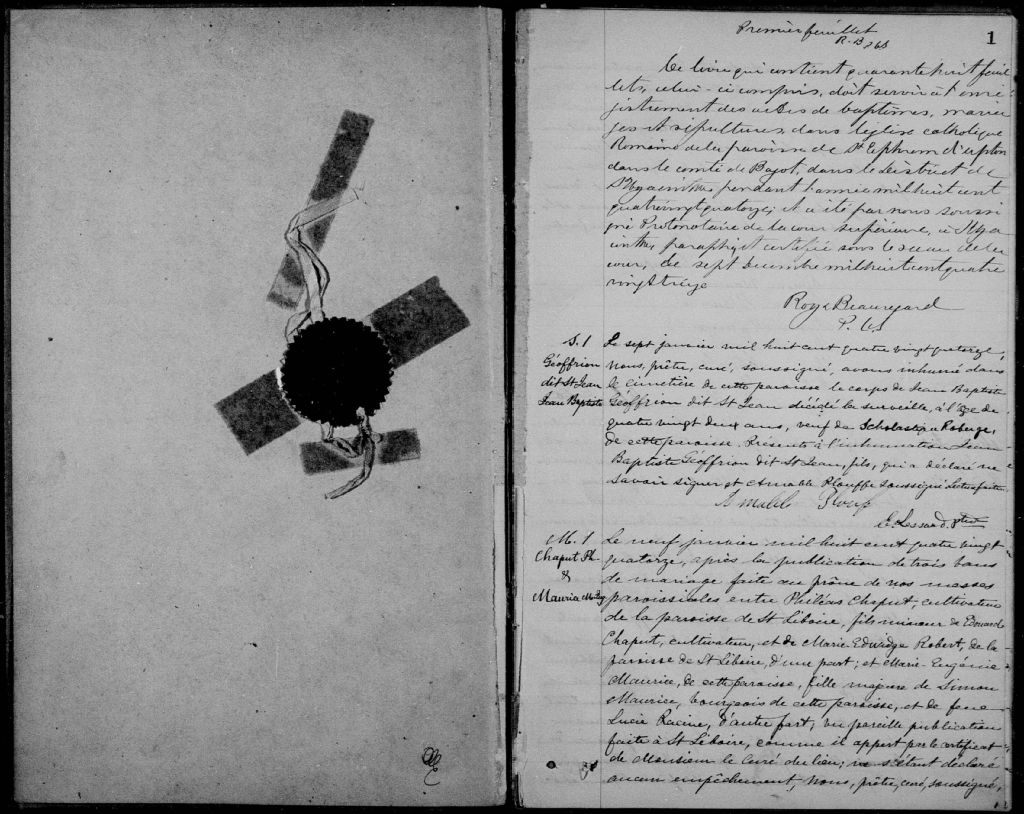 Premier feuillet
R. B
1
Ce livre qui contient quarante huit feuil
lets, celui-ci compris, doit servir à l'enre
gistrement des actes de baptêmes, maria
ges et sépultures, dans l'église catholique
Romaine de la paroisse de St Ephrem d'Upton
dans le comté de Bagot, dans le District de
St Hyacinthe pendant l'année mil huit cent
quatrevingt quatorze; et a été par nous soussi
gné Protonotaire de la cour supérieure, à St Hya
cinthe, paraphé et certifié sous le sceau de la
cour, ce sept décembre mil huit cent quatre
vingt treize
Roy & Beauregard
P. C.S
S. 1
Geoffrion
dit St Jean
Jean Baptiste
Le sept janvier mil huit cent quatre vingt quatorze,
nous, prêtre, curé, soussigné, avons inhumé dans
le cimetière de cette paroisse le corps de Jean Baptiste
Geoffrion dit St Jean décédé la surveille, à l'âge de
quatre vingt deux ans, veuf de Scholastique Roberge,
de cette paroisse. Présents à l'inhumation Jean
Baptiste Geoffrion dit St Jean, fils, qui a déclaré ne
savoir signer et Amable Plouffe soussigné. Lecture faite.
Amable Plouf
E. Lessard. ptre
M. 1
Chaput Ph.
&
Maurice M. Eug
Le neuf janvier mil huit cent quatre vingt
quatorze, après la publication de trois bans
de mariage faite au prône de nos messes
paroissiales entre Philéas Chaput, cultivateur
de la paroisse de St Liboire, fils mineur de Edouard
Chaput, cultivateur, et de Marie-Edwidge Robert, de la
paroisse de St Liboire, d'une part; et Marie-Eugénie
Maurice, de cette paroisse, fille majeure de Simon
Maurice, bourgeois de cette paroisse, et de feue
Lucie Racine, d'autre part; vu pareille publication
faite à St Liboire, comme il appert par le certificat
de Monsieur le Curé du lieu; ne s'étant déclaré
aucun empêchement, Nous, prêtre, curé, soussigné,